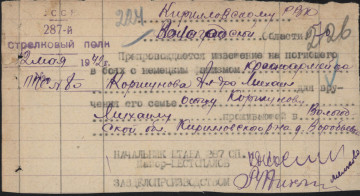 СССР
287-й
стрелковый полк
2 мая 194 г.
№ 85
Кирилловскому РВК
Вологодской области
Препровождается извещение на погибшего
в боях с немецким фашизмом красноармейца
Коршунова Михаил для вру-
чения его семье. Отцу Коршунову
Михаилу проживает в Волог-
ской обл. Кирилловский р-на д. Воробьево
НАЧАЛЬНИК ШТАБА 287 СП
МАЙОР
ЗАВДЕЛОПРОИЗВОДСТВОМ